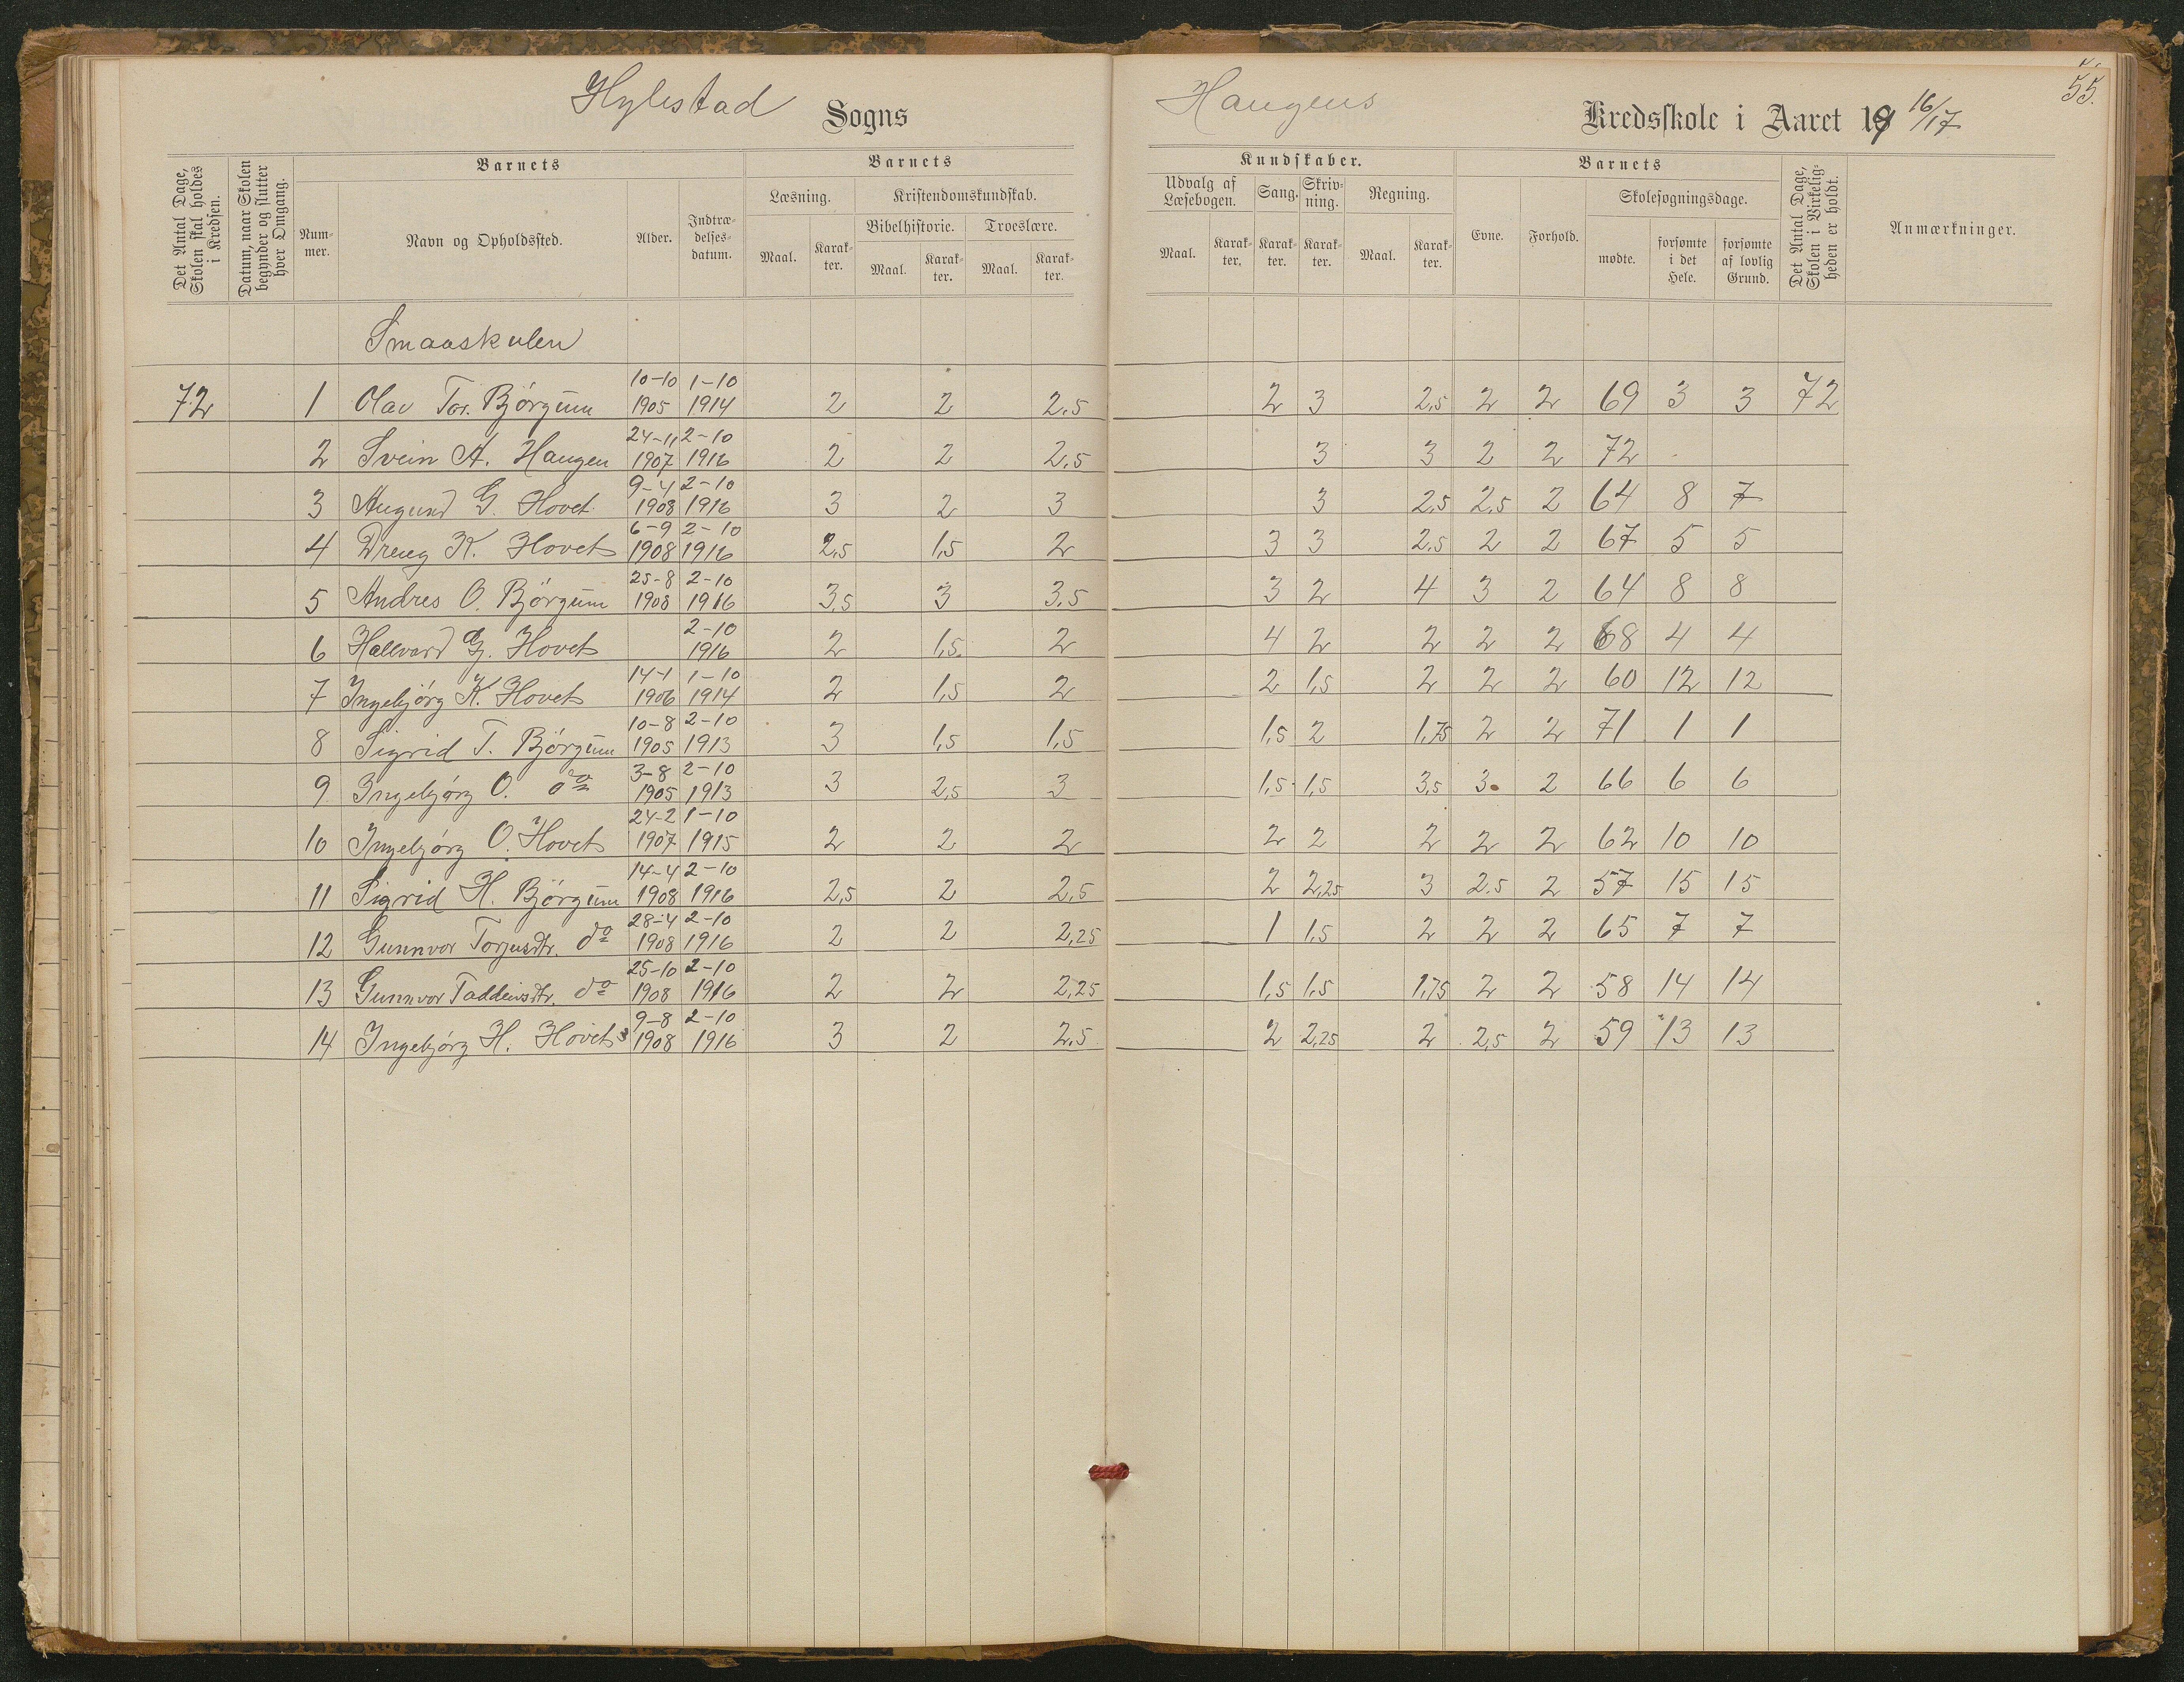 Hylestad Sogns
Haugens Kredsskole i Aaret 19 16/17
55.
Det Antal Dage, Skolen skal holdes i Kredsen.
Datum, naar Skolen begynder og slutter hver Omgang.
Barnets
Nummer.
Navn og Opholdssted.
Alder.
Indtrædelsesdatum.
Barnets
Læsning.
Maal.
Karakter.
Kristendomskundskab.
Bibelhistorie.
Maal.
Karakter.
Troeslære.
Maal.
Karakter.
Kundskaber.
Udvalg af Læsebogen.
Maal.
Karakter.
Sang.
Karakter.
Skrivning.
Karakter.
Regning.
Maal.
Karakter.
Barnets
Evne.
Forhold.
Skolesøgningsdage.
mødte.
forsømte i det Hele.
forsømte af lovlig Grund.
Det Antal Dage, Skolen i Virkeligheden er holdt.
Anmærkninger.
Smaaskulen
72 1 Olav Tor. Bjørgum 10-10 1905 1-10 1914 2 2 2.5 2 3 2,5 2 2 69 3 3 72
2 Svein A. Haugen 24-11 1907 2-10 1916 2 2 2.5 3 3 2 2 72
3 Augund G. Hovet 9-4 1908 2-10 1916 3 2 3 3 2,5 2,5 2 64 8 7
4 Dreng K. Hovet 6-9 1908 2-10 1916 2,5 1,5 2 3 3 2,5 2 2 67 5 5
5 Andres O. Bjørgum 25-8 1908 2-10 1916 3,5 3 3,5 3 2 4 3 2 64 8 8
6 Hallvard G. Hovet 2-10 1916 2 1,5 2 4 2 2 2 2 68 4 4
7 Ingebjørg K. Hovet 14-1 1906 1-10 1914 2 1,5 2 2 1,5 2 2 2 60 12 12
8 Sigrid T. Bjørgum 10-8 1905 2-10 1913 3 1,5 1,5 1,5 2 1,75 2 2 71 1 1
9 Ingebjørg O. do 3-8 1905 2-10 1913 3 2,5 3 1,5 1,5 3,5 3 2 66 6 6
10 Ingebjørg O. Hovet 24-2 1907 1-10 1915 2 2 2 2 2 2 2 2 62 10 10
11 Sigrid H. Bjørgum 14-4 1908 2-10 1916 2,5 2 2,5 2 2,25 3 2.5 2 57 15 15
12 Gunnvor Torjusdtr. do 28-4 1908 2-10 1916 2 2 2,25 1 1,5 2 2 2 65 7 7
13 Gunnvor Taddeivsdtr. do 25-10 1908 2-10 1916 2 2 2,25 1,5 1,5 1,75 2 2 58 14 14
14 Ingebjørg H. Hovet 9-8 1908 2-10 1916 3 2 2,5 2 2,25 2 2,5 2 59 13 13